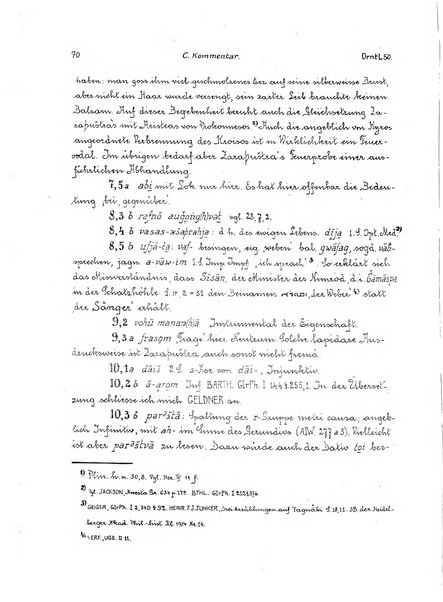 70 C. Kommentar. Orntl. 50.
haben: man goss ihm viel geschmolzenes Erz auf seine silberweisse Brust,
aber nicht ein Haar wurde versengt, sein zarter Leib brauchte keinen
Balsam. Auf dieser Begebenheit beruht auch die Gleichsetzung Za-
raþuštra's mit Aristeas von Prokonnesos.¹⁾ Auch die angeblich von Kyros
angeordnete Verbrennung des Kroisos ist in Wirklichkeit ein Feuer-
ordal. Im übrigen bedarf aber Zaraþuštra's Feuerprobe einer aus-
führlichen Abhandlung.
7,5a abī mit Lok. nur hier. Es hat hier offenbar die Bedeu-
tung ‚bei, gegenüber'.
8,3 b vgl. 28,7,2.
8,4 b vasas-xšaþrahja: d.h. des ewigen Lebens. dījā 1.S. Opt. Med.²⁾
8,5 b ufjā-čā: vaf- besingen, eig. ‚weben' bal. gwāfag, sogd. wāb-
sprechen, jagn. a-vāw-im 1.S. Imp. Impf. ‚ich sprach'.³ So erklärt sich
das Missverständnis, dass Sīsān, der Minister des Nimrod, d.i. Ǧāmāspa
in der Schatzhöhle S. 2 = 31 den Beinamen ‚der Weber'⁴⁾ statt
‚der Sänger' erhält.
9,2 vohū manaŋhā Instrumental der Eigenschaft.
9,3 a frasəm ‚Frage' hier Neutrum. Solche lapidare Aus-
drucksweise ist Zaraþuštra auch sonst nicht fremd.
10,1a dāiš 2.S. s-Aor von dāi-, Injunktiv.
10,2 b ā-arəm Inf. BARTH. GIrPh. I 144 § 255,1. In der Überset-
zung schliesse ich mich GELDNER an.
10,3 b parᵊštā: Spaltung der r-Gruppe metri causa; angeb-
lich Infinitiv, mit ah- im Sinne des Gerundivs (AIW. 277 a 3). Vielleicht
ist aber parᵊštvā zu lesen. Dazu würde auch der Dativ tōi bes-
¹⁾ Plin. h. n. 30,8.
²⁾ Vgl. JACKSON, Avesta Gr. 634 p. 179. BTHL. GIrPh. I
³⁾ GEIGER, GIrPh. I 2, 340 § 92. HEINR. F. J. JUNKER, Drei Erzählungen auf Yaġnābī S. 18,11: SB. der Heidel-
berger Akad. Phil.-hist. Kl. 1914 Nr. 14.
⁴⁾ HERF, UGE II 11.